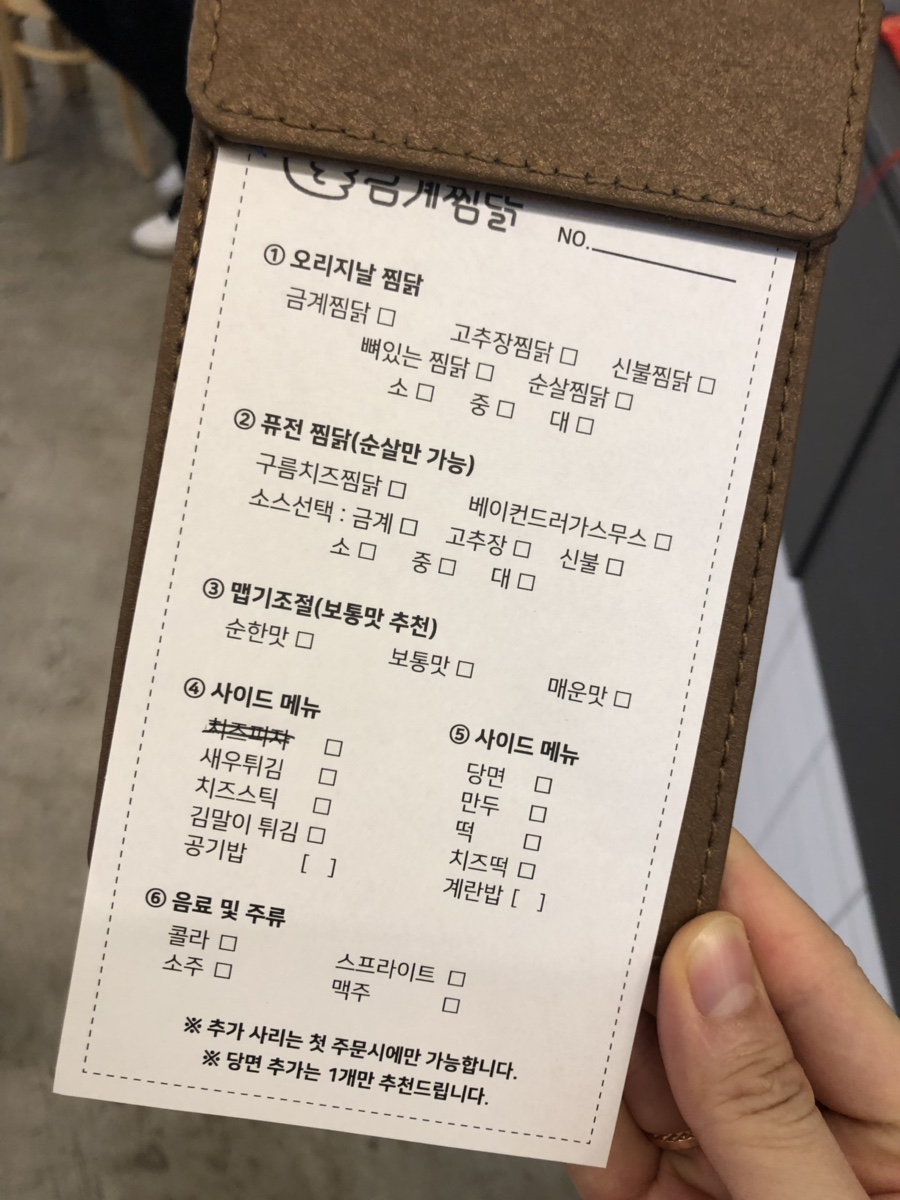 금계찜닭
NO.
① 오리지날 찜닭
금계찜닭 □ 고추장찜닭 □ 신불찜닭 □
뼈있는 찜닭 □ 순살찜닭 □
소 □ 중 □ 대 □
② 퓨전 찜닭(순살만 가능)
구름치즈찜닭 □ 베이컨드러가스무스 □
소스선택 : 금계 □ 고추장 □ 신불 □
소 □ 중 □ 대 □
③ 맵기조절(보통맛 추천)
순한맛 □ 보통맛 □ 매운맛 □
④ 사이드 메뉴
치즈피자 □
새우튀김 □
치즈스틱 □
김말이 튀김 □
공기밥 [ ]
⑤ 사이드 메뉴
당면 □
만두 □
떡 □
치즈떡 □
계란밥 [ ]
⑥ 음료 및 주류
콜라 □ 스프라이트 □
소주 □ 맥주 □
※ 추가 사리는 첫 주문시에만 가능합니다.
※ 당면 추가는 1개만 추천드립니다.